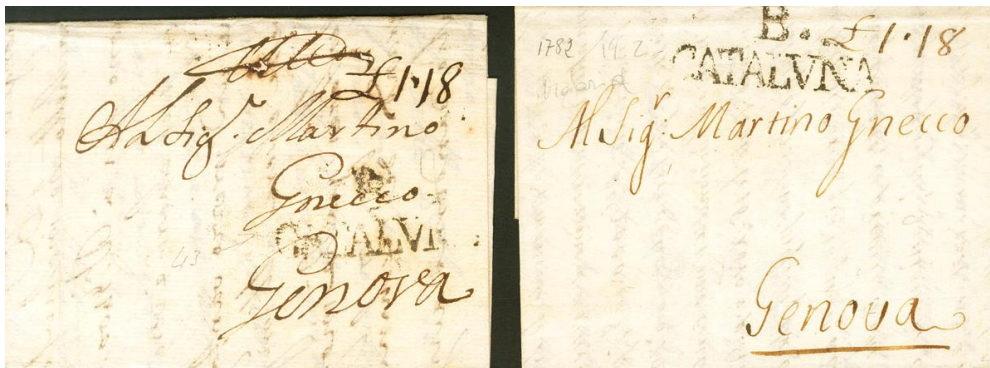 £1·18
Al Sig.r Martino
Gnecco
CATALVN
Genova
43
1782 19 2
B.
£1·18
CATALVNA
Al Sig.r Martino Gnecco
Genova